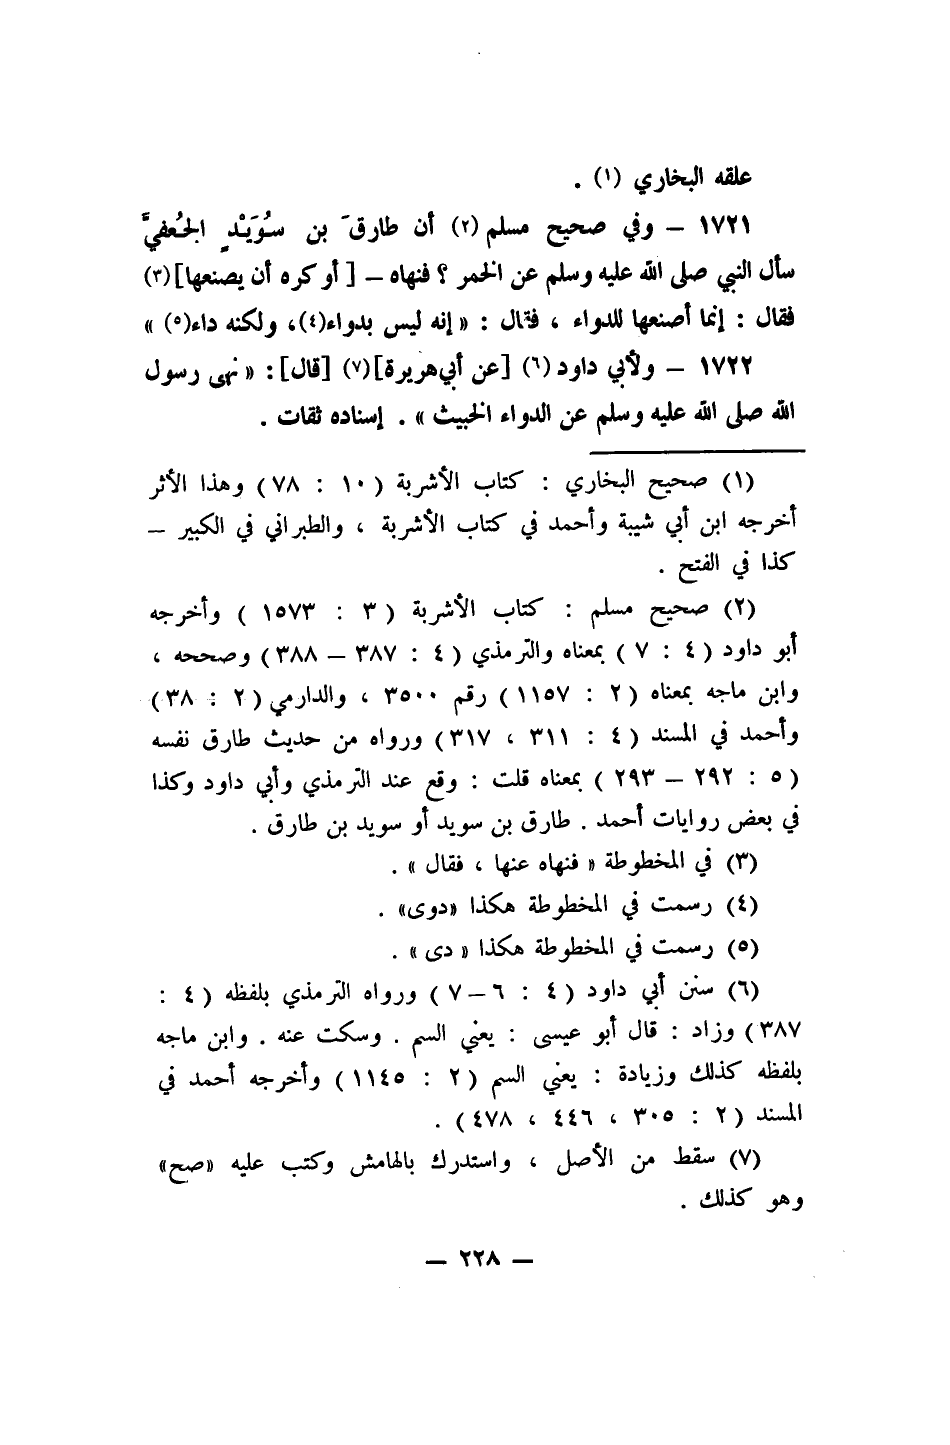 علقه البخاري (١) .
١٧٢١ – وفي صحيح مسلم (٢) أن طارقَ بن سُوَيْدٍ الجُعفيَّ
سأل النبي صلى الله عليه وسلم عن الخمر ؟ فنهاه – [ أو كره أن يصنعها](٣)
فقال : إنما أصنعها للدواء ، فقال : « إنه ليس بدواء(٤)، ولكنه داء(٥) »
١٧٢٢ – ولأبي داود (٦) [عن أبي هريرة](٧) [قال]: « نهى رسول
الله صلى الله عليه وسلم عن الدواء الخبيث » . إسناده ثقات .
(١) صحيح البخاري : كتاب الأشربة ( ١٠ : ٧٨ ) وهذا الأثر
أخرجه ابن أبي شيبة وأحمد في كتاب الأشربة ، والطبراني في الكبير –
كذا في الفتح .
(٢) صحيح مسلم : كتاب الأشربة ( ٣ : ١٥٧٣ ) وأخرجه
أبو داود ( ٤ : ٧ ) بمعناه والترمذي ( ٤ : ٣٨٧ – ٣٨٨ ) وصححه ،
وابن ماجه بمعناه ( ٢ : ١١٥٧ ) رقم ٣٥٠٠ ، والدارمي ( ٢ : ٣٨ )
وأحمد في المسند ( ٤ : ٣١١ ، ٣١٧ ) ورواه من حديث طارق نفسه
( ٥ : ٢٩٢ – ٢٩٣ ) بمعناه قلت : وقع عند الترمذي وأبي داود وكذا
في بعض روايات أحمد . طارق بن سويد أو سويد بن طارق .
(٣) في المخطوطة « فنهاه عنها ، فقال » .
(٤) رسمت في المخطوطة هكذا «دوى» .
(٥) رسمت في المخطوطة هكذا « دى » .
(٦) سنن أبي داود ( ٤ : ٦ – ٧ ) ورواه الترمذي بلفظه ( ٤ :
٣٨٧ ) وزاد : قال أبو عيسى : يعني السم . وسكت عنه . وابن ماجه
بلفظه كذلك وزيادة : يعني السم ( ٢ : ١١٤٥ ) وأخرجه أحمد في
المسند ( ٢ : ٣٠٥ ، ٤٤٦ ، ٤٧٨ ) .
(٧) سقط من الأصل ، واستدرك بالهامش وكتب عليه «صح»
وهو كذلك .
– ٢٢٨ –